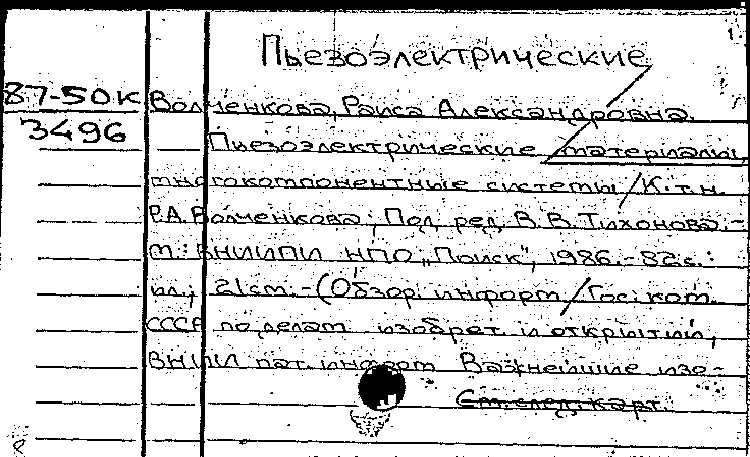 Пьезоэлектрические
87-50К
3496
Волченкова, Раиса Александровна.
Пьезоэлектрические материалы,
многокомпонентные системы / К.т.н.
Р.А. Волченкова; Под ред. В.В. Тихонова. -
М.: ВНИИПИ НПО „Поиск", 1986. - 82 с.:
ил.; 21 см. - (Обзор. информ / Гос. ком.
СССР по делам изобрет и открытий,
ВНИИ пат. информ Важнейшие изо-
См. след. карт.